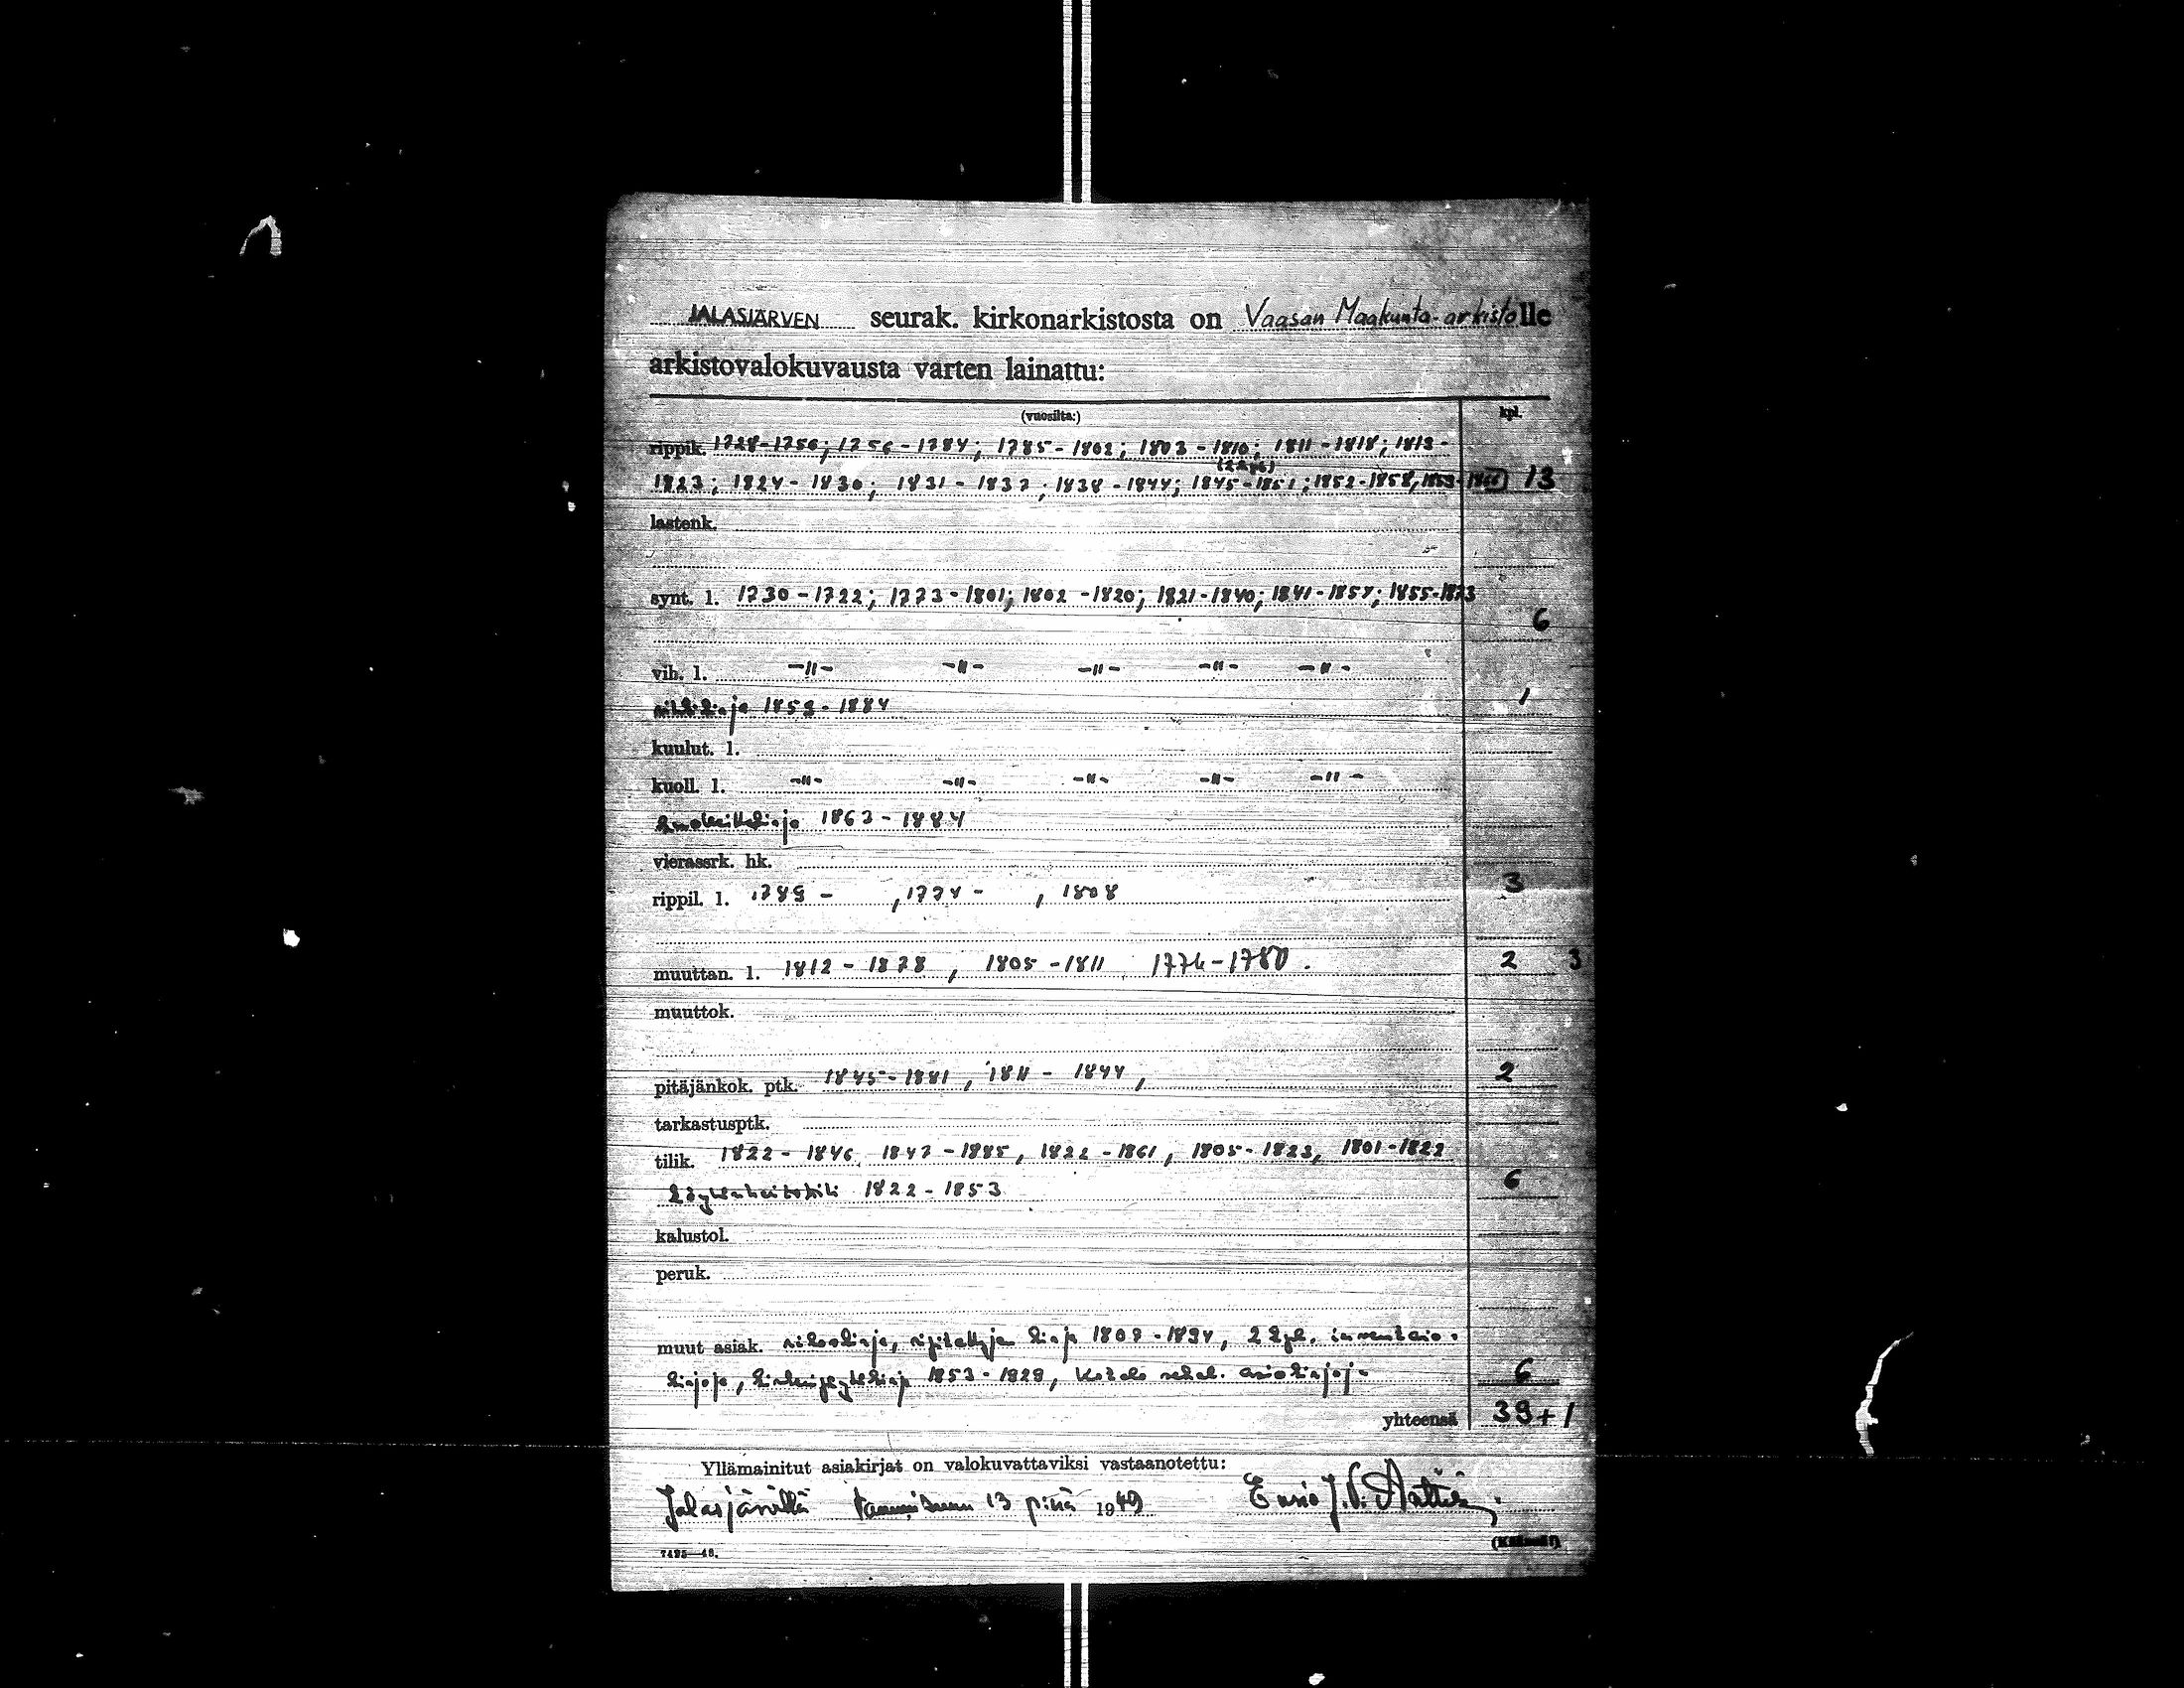 JALASJÄRVEN seurak. kirkonarkistosta on Vaasan Maakunta-arkistolle
arkistovalokuvausta varten lainattu:
(vuosilta:) kpl.
rippik. 1728-1756; 1756-1784; 1785-1802; 1803-1810; 1811-1818; 1818-
(2 kpl)
1823; 1824-1830; 1831-1837; 1838-1844; 1845-1851; 1852-1858, 13
lastenk.
synt. l. 1730-1772; 1773-1801; 1802-1820; 1821-1840; 1841-1854; 1855-1873
6
vih. l. -"- -"- -"- -"- -"-
1858-1884 1
kuulut. l.
kuoll. l. -"- -"- -"- -"- -"-
1863-1884
vierassrk. hk.
rippil. l. 1789- , 1774- , 1808 3
muuttan. l. 1812-1878, 1805-1811, 1774-1780. 2 3
muuttok.
pitäjänkok. ptk. 1845-1881, 1811-1844, 2
tarkastusptk.
tilik. 1822-1846, 1847-1885, 1822-1861, 1805-1823, 1801-1822
1822-1853 6
kalustol.
peruk.
muut asiak. 2 kpl.
6
yhteensä 39+1
Yllämainitut asiakirjat on valokuvattaviksi vastaanotettu:
Jalasjärvellä tammikuun 13 p:nä 1949
7495—46.